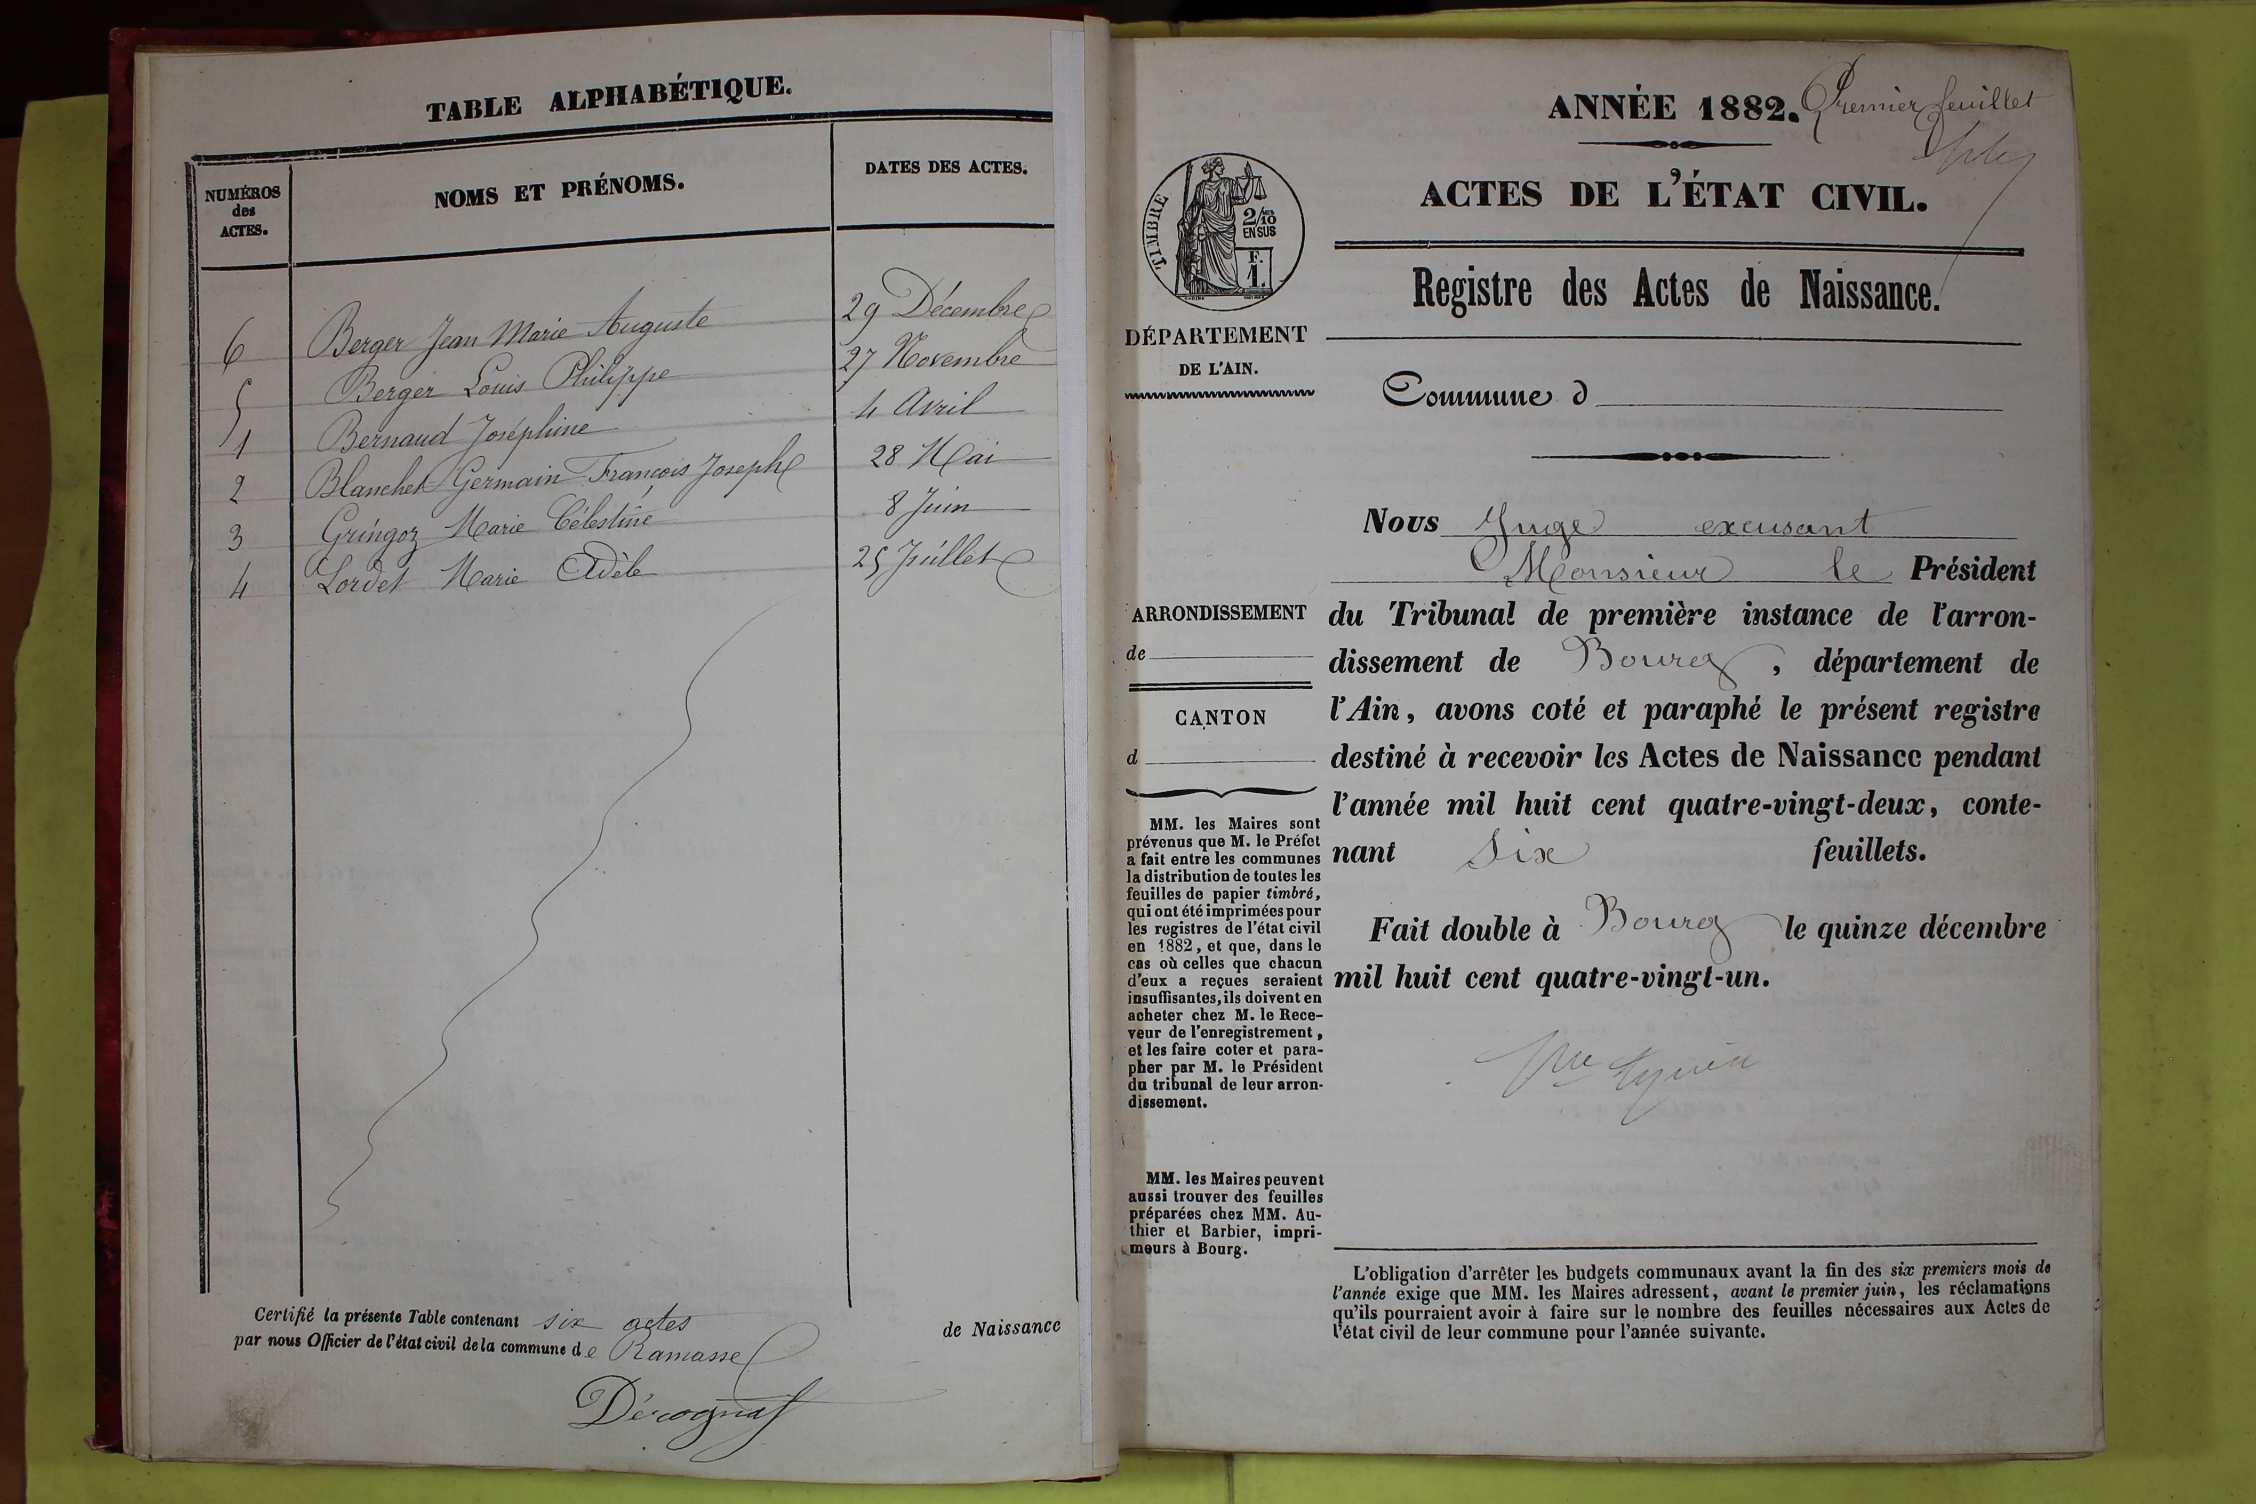 TABLE ALPHABÉTIQUE.
NUMÉROS
des
ACTES.
NOMS ET PRÉNOMS.
DATES DES ACTES.
6 Berger Jean Marie Auguste 29 Décembre
5 Berger Louis Philippe 27 Novembre
1 Bernaud Joséphine 4 Avril
2 Blanchet Germain François Joseph 28 Mai
3 Gringoz Marie Célestine 8 Juin
4 Lordet Marie Adèle 25 Juillet
Certifié la présente Table contenant six actes de Naissance
par nous Officier de l'état civil de la commune de Ramasse
ANNÉE 1882. Premier feuillet
ACTES DE L'ÉTAT CIVIL.
TIMBRE
2/10
EN SUS
F.
1.
Registre des Actes de Naissance.
DÉPARTEMENT
DE L'AIN.
Commune d
Nous Juge excusant
Monsieur le Président
ARRONDISSEMENT
de
CANTON
d
du Tribunal de première instance de l'arron-
dissement de Bourg, département de
l'Ain, avons coté et paraphé le présent registre
destiné à recevoir les Actes de Naissance pendant
l'année mil huit cent quatre-vingt-deux, conte-
nant six feuillets.
Fait double à Bourg le quinze décembre
mil huit cent quatre-vingt-un.
MM. les Maires sont
prévenus que M. le Préfet
a fait entre les communes
la distribution de toutes les
feuilles de papier timbré,
qui ont été imprimées pour
les registres de l'état civil
en 1882, et que, dans le
cas où celles que chacun
d'eux a reçues seraient
insuffisantes, ils doivent en
acheter chez M. le Rece-
veur de l'enregistrement,
et les faire coter et para-
pher par M. le Président
du tribunal de leur arron-
dissement.
MM. les Maires peuvent
aussi trouver des feuilles
préparées chez MM. Au-
thier et Barbier, impri-
meurs à Bourg.
L'obligation d'arrêter les budgets communaux avant la fin des six premiers mois de
l'année exige que MM. les Maires adressent, avant le premier juin, les réclamations
qu'ils pourraient avoir à faire sur le nombre des feuilles nécessaires aux Actes de
l'état civil de leur commune pour l'année suivante.